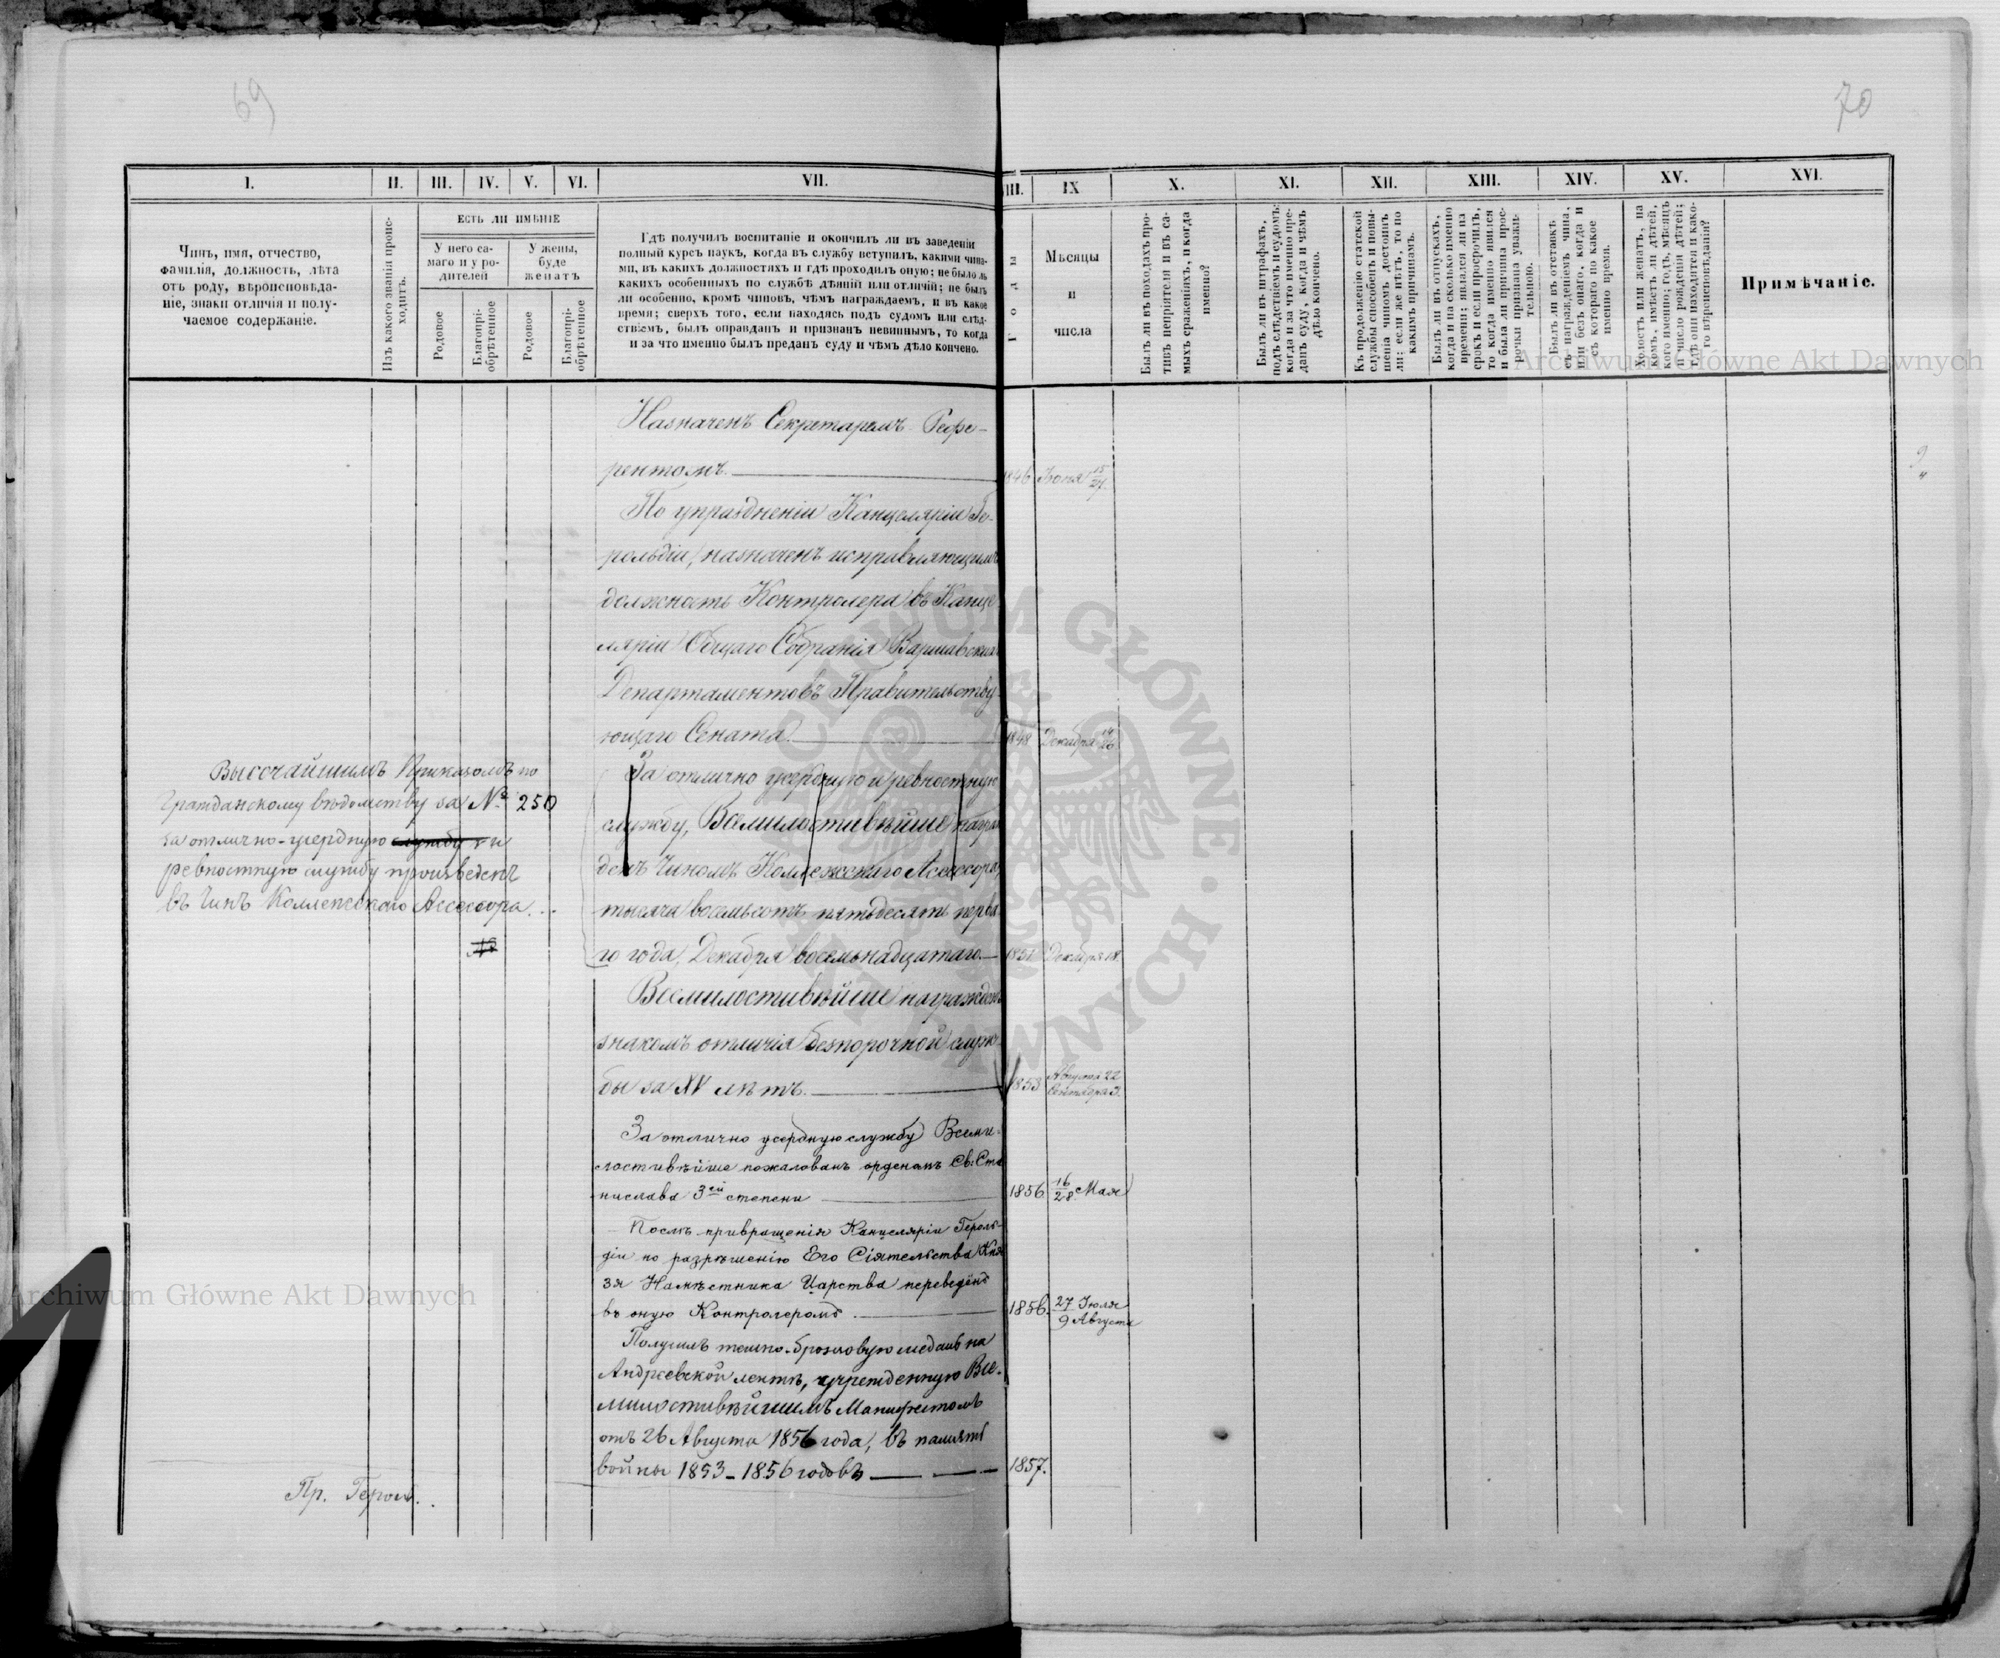 69
70
I.
II.
III.
IV.
V.
VI.
VII.
III.
IX
X.
XI.
XII.
XIII.
XIV.
XV.
XVI.
Чинъ, имя, отчество,
фамилія, должность, лѣта
отъ роду, вѣроисповѣда-
ніе, знаки отличія и полу-
чаемое содержаніе.
Изъ какого званія проис-
ходитъ.
ЕСТЬ ЛИ ИМѢНІЕ
У него са-
маго и у ро-
дителей
У жены,
буде
женатъ
Родовое
Благопрі-
обрѣтенное
Родовое
Благопрі-
обрѣтенное
Гдѣ получилъ воспитаніе и окончилъ ли въ заведеніи
полный курсъ наукъ, когда въ службу вступилъ, какими чина-
ми, въ какихъ должностяхъ и гдѣ проходилъ оную; не было ль
какихъ особенныхъ по службѣ дѣяній или отличій; не былъ
ли особенно, кромѣ чиновъ, чѣмъ награждаемъ, и въ какое
время; сверхъ того, если находясь подъ судомъ или слѣд-
ствіемъ, былъ оправданъ и признанъ невиннымъ, то когда
и за что именно былъ преданъ суду и чѣмъ дѣло кончено.
Годы
Мѣсяцы
и
числа
Былъ ли въ походахъ про-
тивъ непріятеля и въ са-
мыхъ сраженіяхъ, и когда
именно?
Былъ ли въ штрафахъ,
подъ слѣдствіемъ и судомъ;
когда и за что именно пре-
данъ суду, когда и чѣмъ
дѣло кончено.
Къ продолженію статской
службы способенъ и повы-
шенія чиномъ достоинъ
ли; если же нѣтъ, то по
какимъ причинамъ.
Былъ ли въ отпускахъ,
когда и на сколько именно
времени; являлся ли на
срокъ и если просрочилъ,
то когда именно явился
и была ли причина прос-
рочки признана уважи-
тельною.
Былъ ли въ отставкѣ
съ награжденіемъ чина,
или безъ онаго, когда и
съ котораго по какое
именно время.
Холостъ или женатъ, на
комъ, имѣетъ ли дѣтей,
кого именно; годъ, мѣсяцъ
и число рожденія дѣтей;
гдѣ они находятся и како-
го вѣроисповѣданія?
Примѣчаніе.
Назначенъ Секретаремъ Рефе-
рентомъ. 1846 Іюня 15/27
По упраздненіи Канцеляріи Ге-
рольдіи, назначенъ исправляющимъ
должность Контролера въ Канце-
ляріи Общаго Собранія Варшавскихъ
Департаментовъ Правительству-
ющаго Сената. 1848 Декабря 14/26
Высочайшимъ Приказомъ по
Гражданскому вѣдомству за № 250
за отлично-усердную службу и
ревностную службу произведенъ
въ Чинъ Коллежскаго Ассесора...
За отлично усердную и ревностную
службу, Всемилостивѣйше награ
денъ Чиномъ Коллежскаго Ассесора,
тысяча восемьсотъ пятьдесятъ перва
го года, Декабря восемьнадцатаго. 1851 Декабря 18.
Всемилостивѣйше награжденъ
знакомъ отличія безпорочной служ-
бы за XV лѣтъ. 1853 Августа 22
Сентября 3.
За отлично усердную службу Всеми-
лостивѣйше пожалованъ орденомъ Св. Ста
нислава 3ей степени 1856 16/28 Мая
Послѣ привращенія Канцеляріи Героль-
діи по разрѣшенію Его Сіятельства Кня
зя Намѣстника Царства переведёнъ
въ оную Контролеромъ. 1856. 27 Іюля
9 Августа
Получилъ темно-бронзовую медаль на
Андреевской лентѣ, учрежденную Все-
милостивѣйшимъ Манифестомъ
отъ 26 Августа 1856 года, въ память
войны 1853-1856 годовъ 1857.
Пр. Герол.
Archiwum Główne Akt Dawnych
Archiwum Główne Akt Dawnych
ARCHIWUM GŁÓWNE AKT DAWNYCH